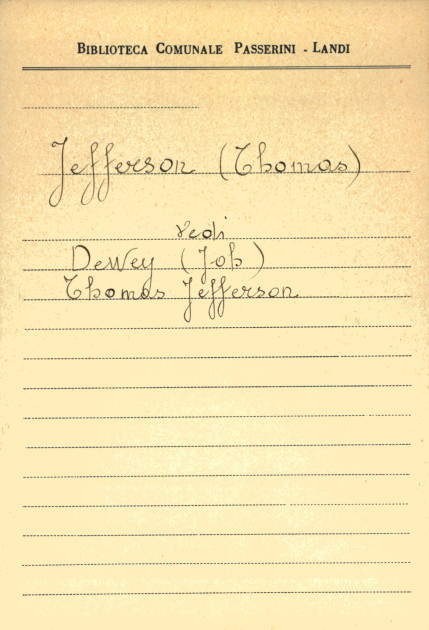 BIBLIOTECA COMUNALE PASSERINI - LANDI
Jefferson (Thomas)
vedi
Dewey (Joh)
Thomas Jefferson